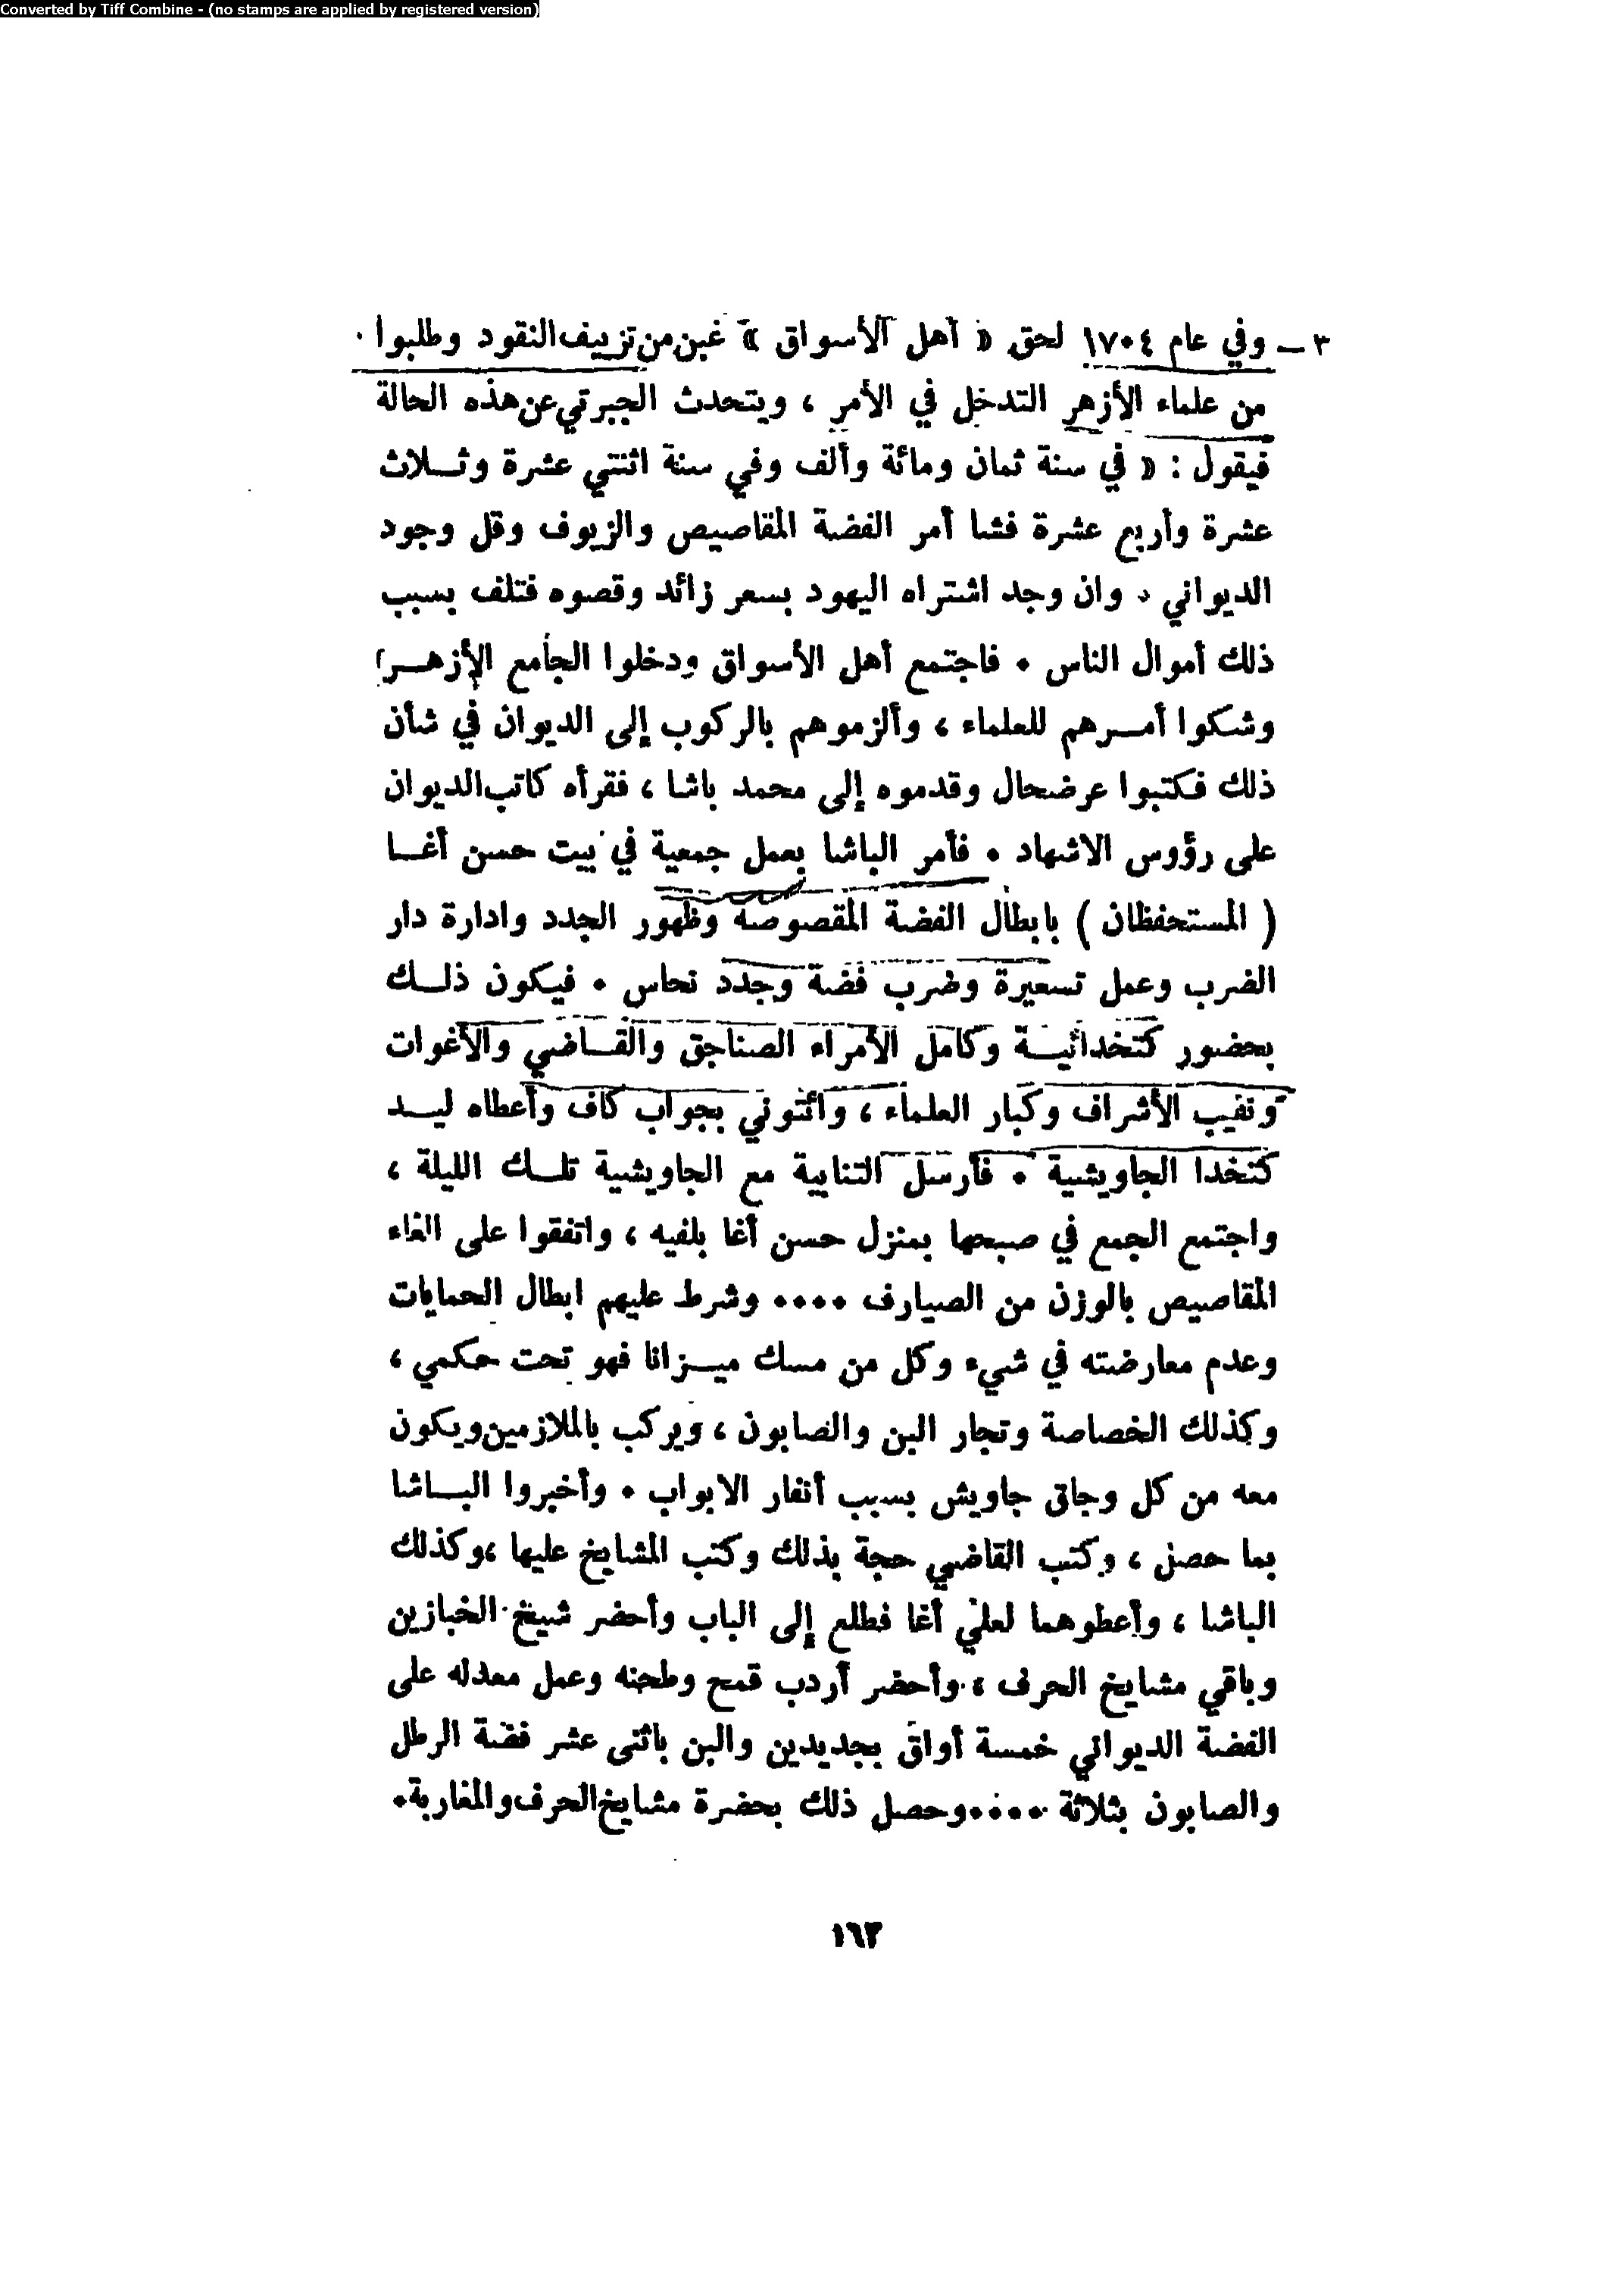 Converted by Tiff Combine - (no stamps are applied by registered version)
٣ – وفي عام ١٧٠٤ لحق « أهل الأسواق » غبن من تزييف النقود وطلبوا
من علماء الأزهر التدخل في الأمر ، ويتحدث الجبرتي عن هذه الحالة
فيقول : « في سنة ثمان ومائة وألف وفي سنة اثنتي عشرة وثـــلاث
عشرة وأربع عشرة فشا أمر الفضة المقاصيص والزيوف وقل وجود
الديواني . وان وجد اشتراه اليهود بسعر زائد وقصوه فتلف بسبب
ذلك أموال الناس . فاجتمع أهل الأسواق ودخلوا الجامع الأزهـــر
وشكوا أمـــرهم للعلماء ، وألزموهم بالركوب إلى الديوان في شأن
ذلك فكتبوا عرضحال وقدموه إلى محمد باشا ، فقرأه كاتب الديوان
على رؤوس الاشهاد . فأمر الباشا بعمل جمعية في بيت حسن أغـــا
( المستحفظان ) بابطال الفضة المقصوصة وظهور الجدد وادارة دار
الضرب وعمل تسعيرة وضرب فضة وجدد نحاس . فيكون ذلـــك
بحضور كتخدائيـــة وكامل الأمراء الصناجق والقـــاضي والأغوات
ونقيب الأشراف وكبار العلماء ، وائتوني بجواب كاف وأعطاه ليـــد
كتخدا الجاويشية . فأرسل التنابية مع الجاويشية تلـــك الليلة ،
واجتمع الجمع في صبحها بمنزل حسن أغا بلفيه ، واتفقوا على الغاء
المقاصيص بالوزن من الصيارف .... وشرط عليهم ابطال الحمايات
وعدم معارضته في شيء وكل من مسك ميـــزانا فهو تحت حكمي ،
وكذلك الخصاصة وتجار البن والصابون ، ويركب بالملازمين ويكون
معه من كل وجاق جاويش بسبب أنفار الابواب . وأخبروا البـــاشا
بما حصل ، وكتب القاضي حجة بذلك وكتب المشايخ عليها ، وكذلك
الباشا ، وأعطوهما لعلي أغا فطلع إلى الباب وأحضر شيخ الخبازين
وباقي مشايخ الحرف ، وأحضر أردب قمح وطحنه وعمل معدله على
الفضة الديواني خمسة أواق بجديدين والبن باثنى عشر فضة الرطل
والصابون بثلاثة .... وحصل ذلك بحضرة مشايخ الحرف والمغاربة .
١٦٣